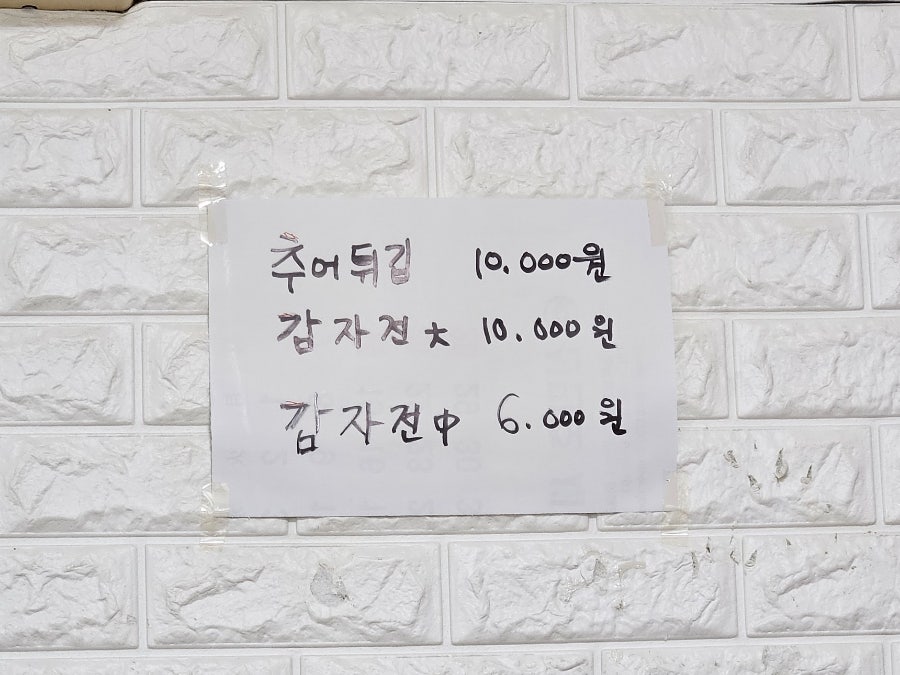 추어튀김 10.000원
감자전 大 10.000원
감자전 中 6.000원